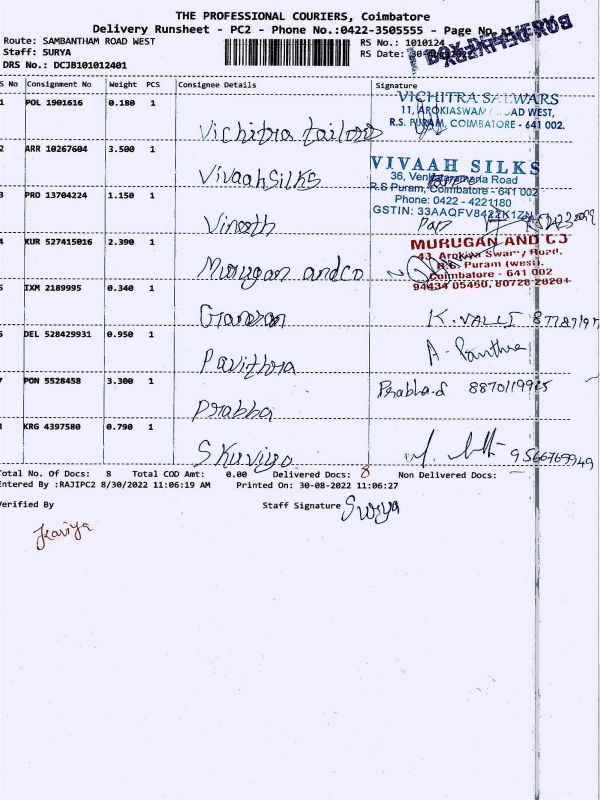 THE PROFESSIONAL COURIERS, Coimbatore
Delivery Runsheet - PC2 - Phone No.:0422-3505555 - Page No.
Route: SAMBANTHAM ROAD WEST RS No.: 1010124
Staff: SURYA RS Date:
DRS No.: DCJB101012401
BOX DELIVERY
S No Consignment No Weight PCS Consignee Details Signature
1 POL 1901616 0.180 1 Vichitra tailors
VICHITRA SALWARS
11, AROKIASWAMY ROAD WEST,
R.S. PURAM, COIMBATORE - 641 002.
2 ARR 10267604 3.500 1 Vivaah Silks
VIVAAH SILKS
36, Venkataramana Road
R.S Puram, Coimbatore - 641 002
Phone: 0422 - 4221180
GSTIN: 33AAQFV8422K1ZN
3 PRO 13704224 1.150 1 Vineeth
4 KUR 527415016 2.390 1 Murugan and co
MURUGAN AND CO
43, Arokiya Swamy Road,
R.S. Puram (west),
Coimbatore - 641 002
94434 05460, 80728 20204
5 IXM 2189995 0.340 1 K.VALLI
6 DEL 528429931 0.950 1 Pavithra A. Pavithra
7 PON 5528458 3.300 1 Prabha Prabha.d 8870119925
8 KRG 4397580 0.790 1 9566769949
Total No. Of Docs: 8 Total COD Amt: 0.00 Delivered Docs: 8 Non Delivered Docs: —
Entered By :RAJIPC2 8/30/2022 11:06:19 AM Printed On: 30-08-2022 11:06:27
Verified By Staff Signature Surya
Kaviya